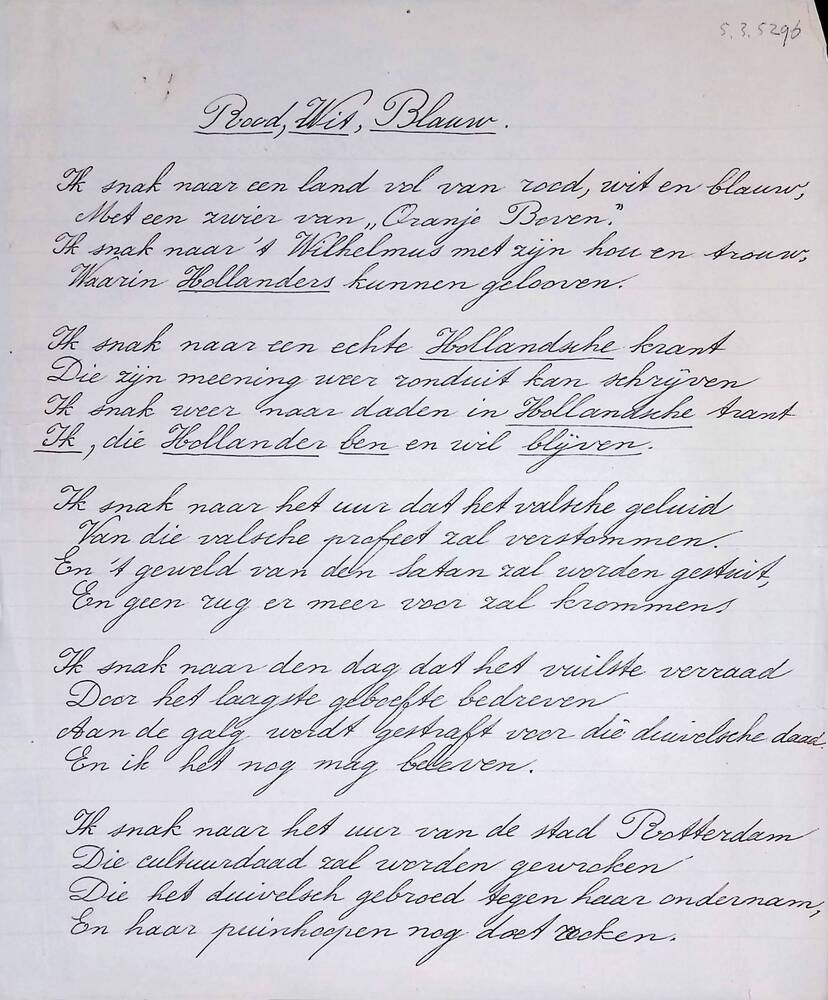 5.3.5296
Rood, Wit, Blauw.
Ik snak naar een land vol van rood, wit en blauw,
Met een zwier van „Oranje Boven."
Ik snak naar 't Wilhelmus met zijn hou en trouw,
Waarin Hollanders kunnen gelooven.
Ik snak naar een echte Hollandsche krant
Die zijn meening weer ronduit kan schrijven
Ik snak weer naar daden in Hollandsche trant
Ik, die Hollander ben en wil blijven.
Ik snak naar het uur dat het valsche geluid
Van die valsche profeet zal verstommen.
En 't geweld van den Satan zal worden gestuit,
En geen rug er meer voor zal krommen!
Ik snak naar den dag dat het vuilste verraad
Door het laagste geboefte bedreven
Aan de galg wordt gestraft voor die duivelsche daad.
En ik het nog mag beleven.
Ik snak naar het uur van de stad Rotterdam
Die cultuurdaad zal worden gewroken
Die het duivelsch gebroed tegen haar ondernam,
En haar puinhoopen nog doet rooken.